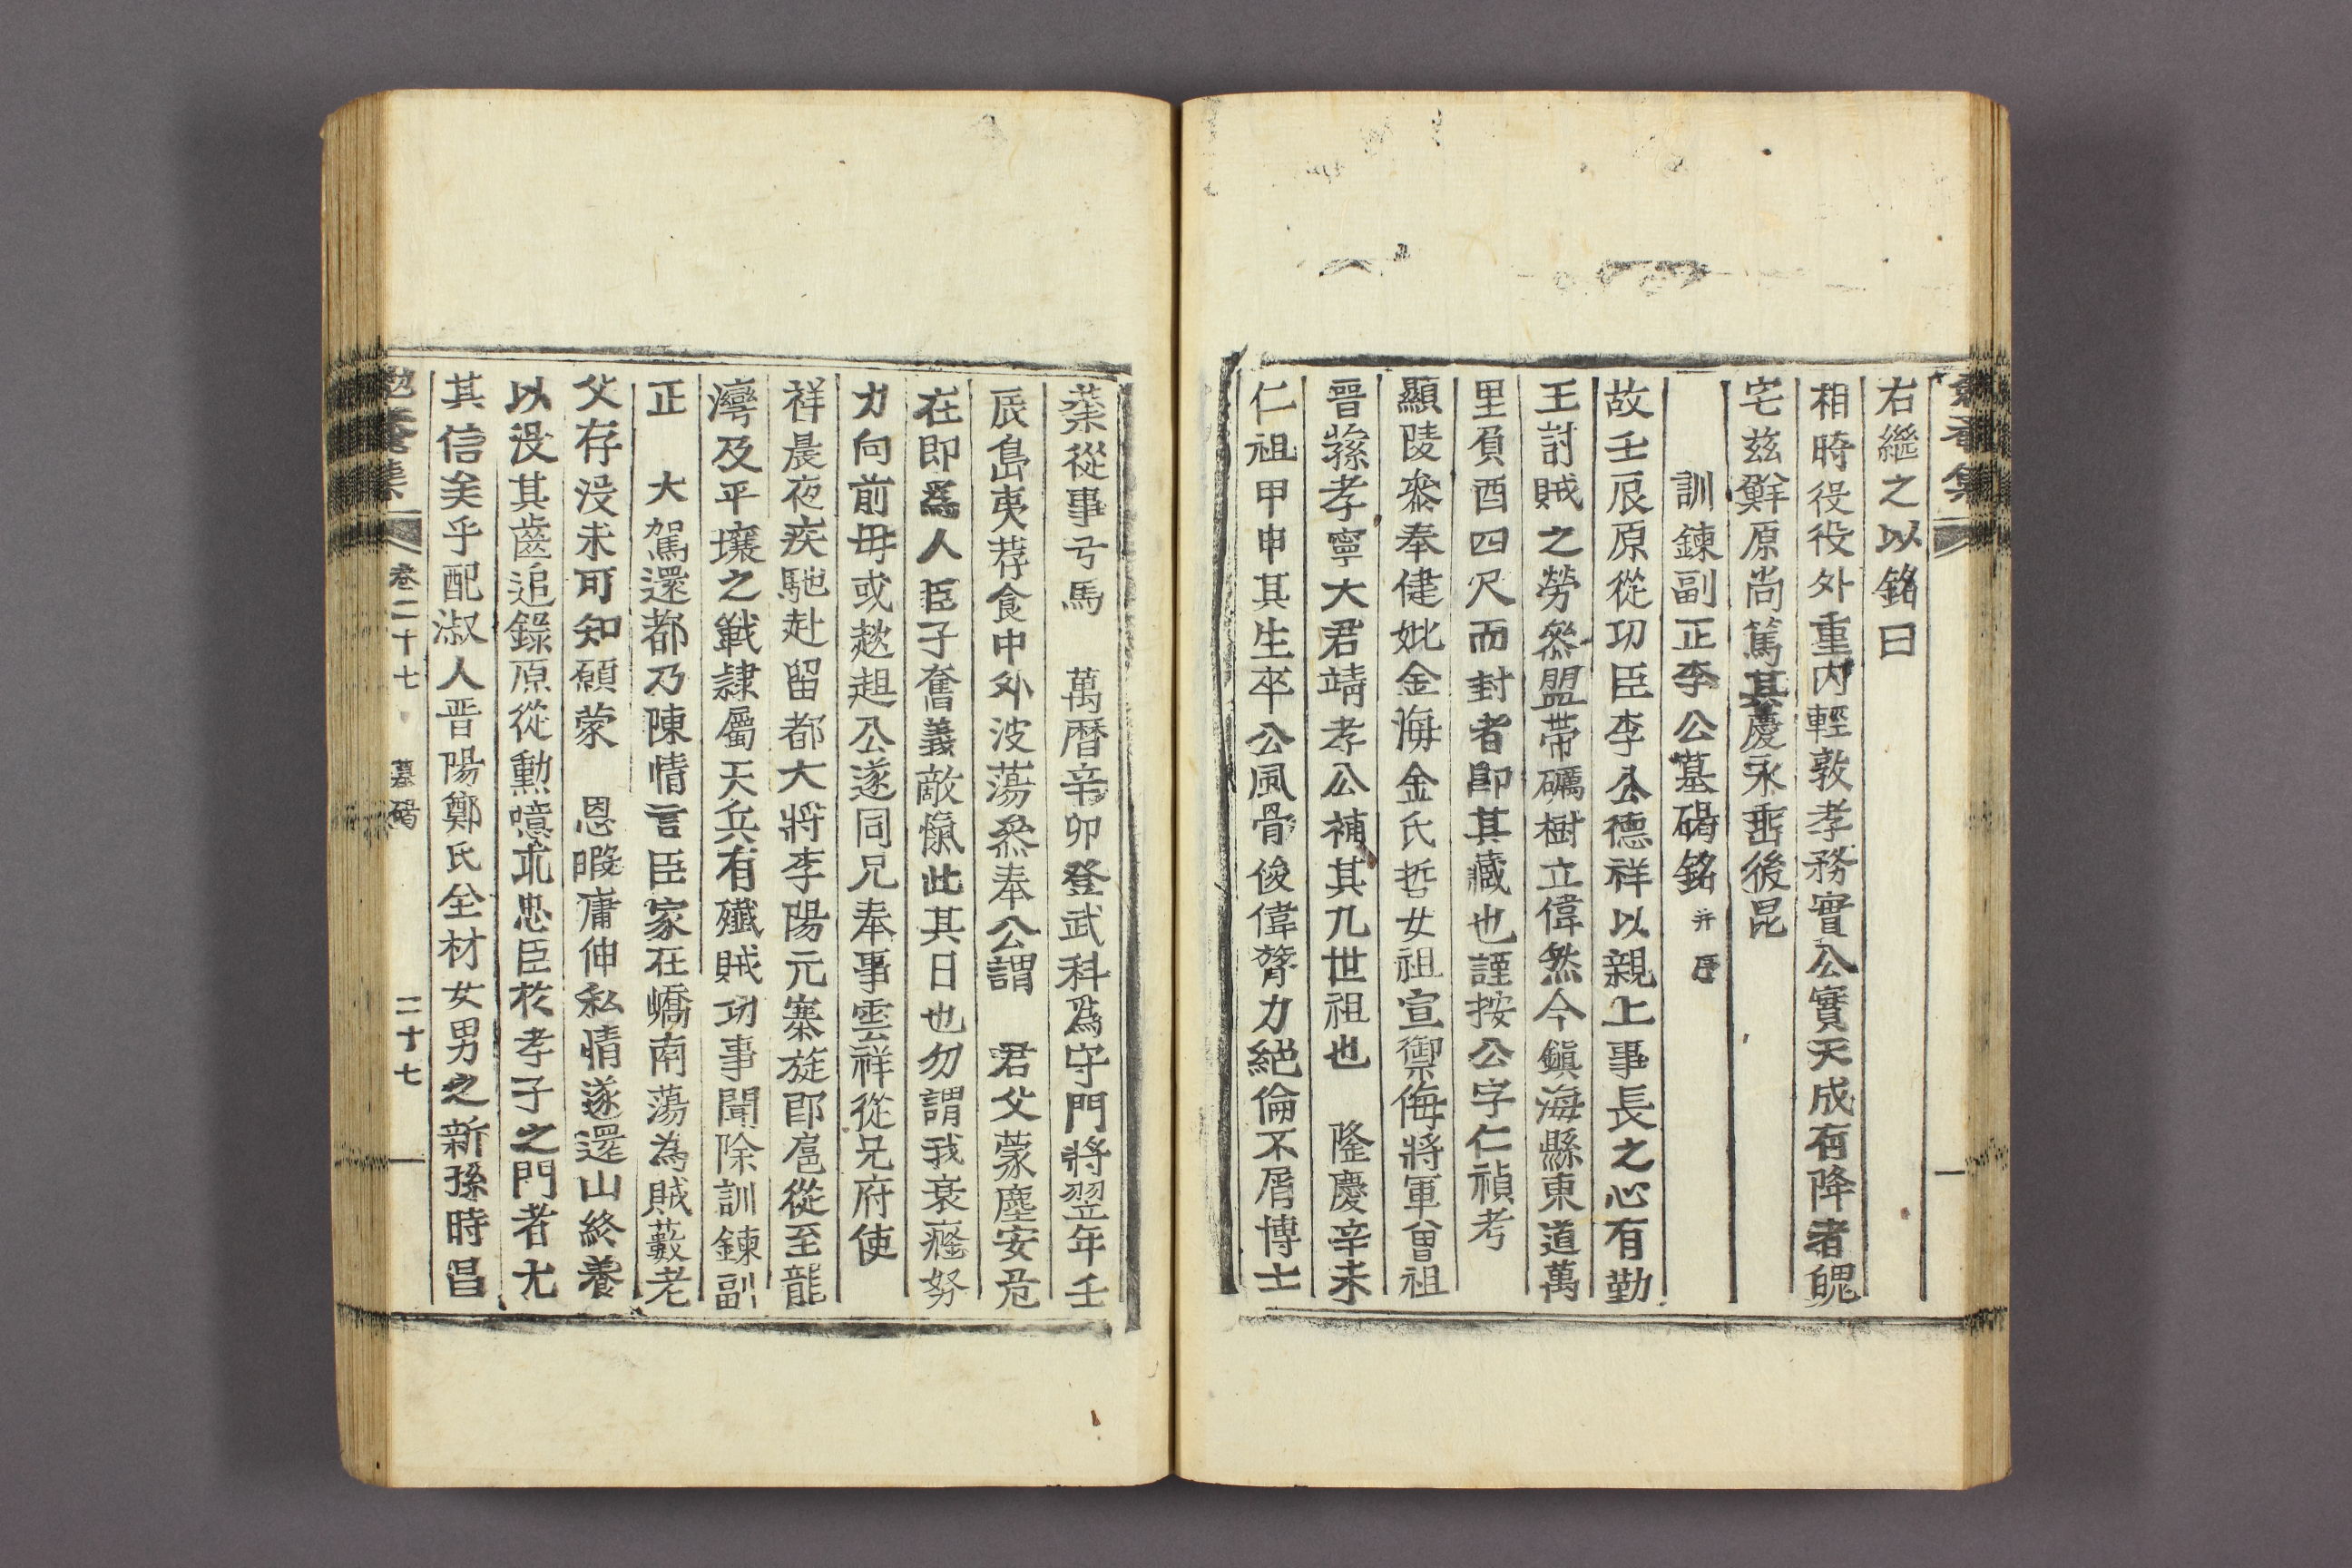 右繼之以銘曰
相時役役外重內輕敦孝務實公實天成有降者䰟
宅玆鮮原尚篤其慶永垂後昆
訓鍊副正李公墓碣銘 并序
故壬辰原從功臣李公德祥以親上事長之心有勤
王討賊之勞叅盟帶礪樹立偉然今鎭海縣東道萬
里負酉四尺而封者卽其藏也謹按公字仁禎考
顯陵叅奉健妣金海金氏哲女祖宣禦侮將軍曾祖
晉蓀孝寧大君靖孝公補其九世祖也 隆慶辛未
仁祖甲申其生卒公風骨俊偉膂力絕倫不屑博士
業從事弓馬 萬曆辛卯登武科爲守門將翌年壬
辰島夷荐食中外波蕩叅奉公謂 君父蒙塵安危
在卽爲人臣子奮義敵愾此其日也勿謂我衰癃努
力向前毋或趑趄公遂同兄奉事雲祥從兄府使
祥晨夜疾馳赴留都大將李陽元寨旋卽扈從至龍
灣及平壤之戰隷屬天兵有殲賊功事聞除訓鍊副
正 大駕還都乃陳情言臣家在嶠南蕩為賊藪老
父存沒未可知願蒙 恩暇庸伸私情遂還山終養
以沒其齒追錄原從勳噫求忠臣於孝子之門者尤
其信矣乎配淑人晋陽鄭氏全材女男之新孫時昌
勉菴集 卷二十七 墓碣 二十七